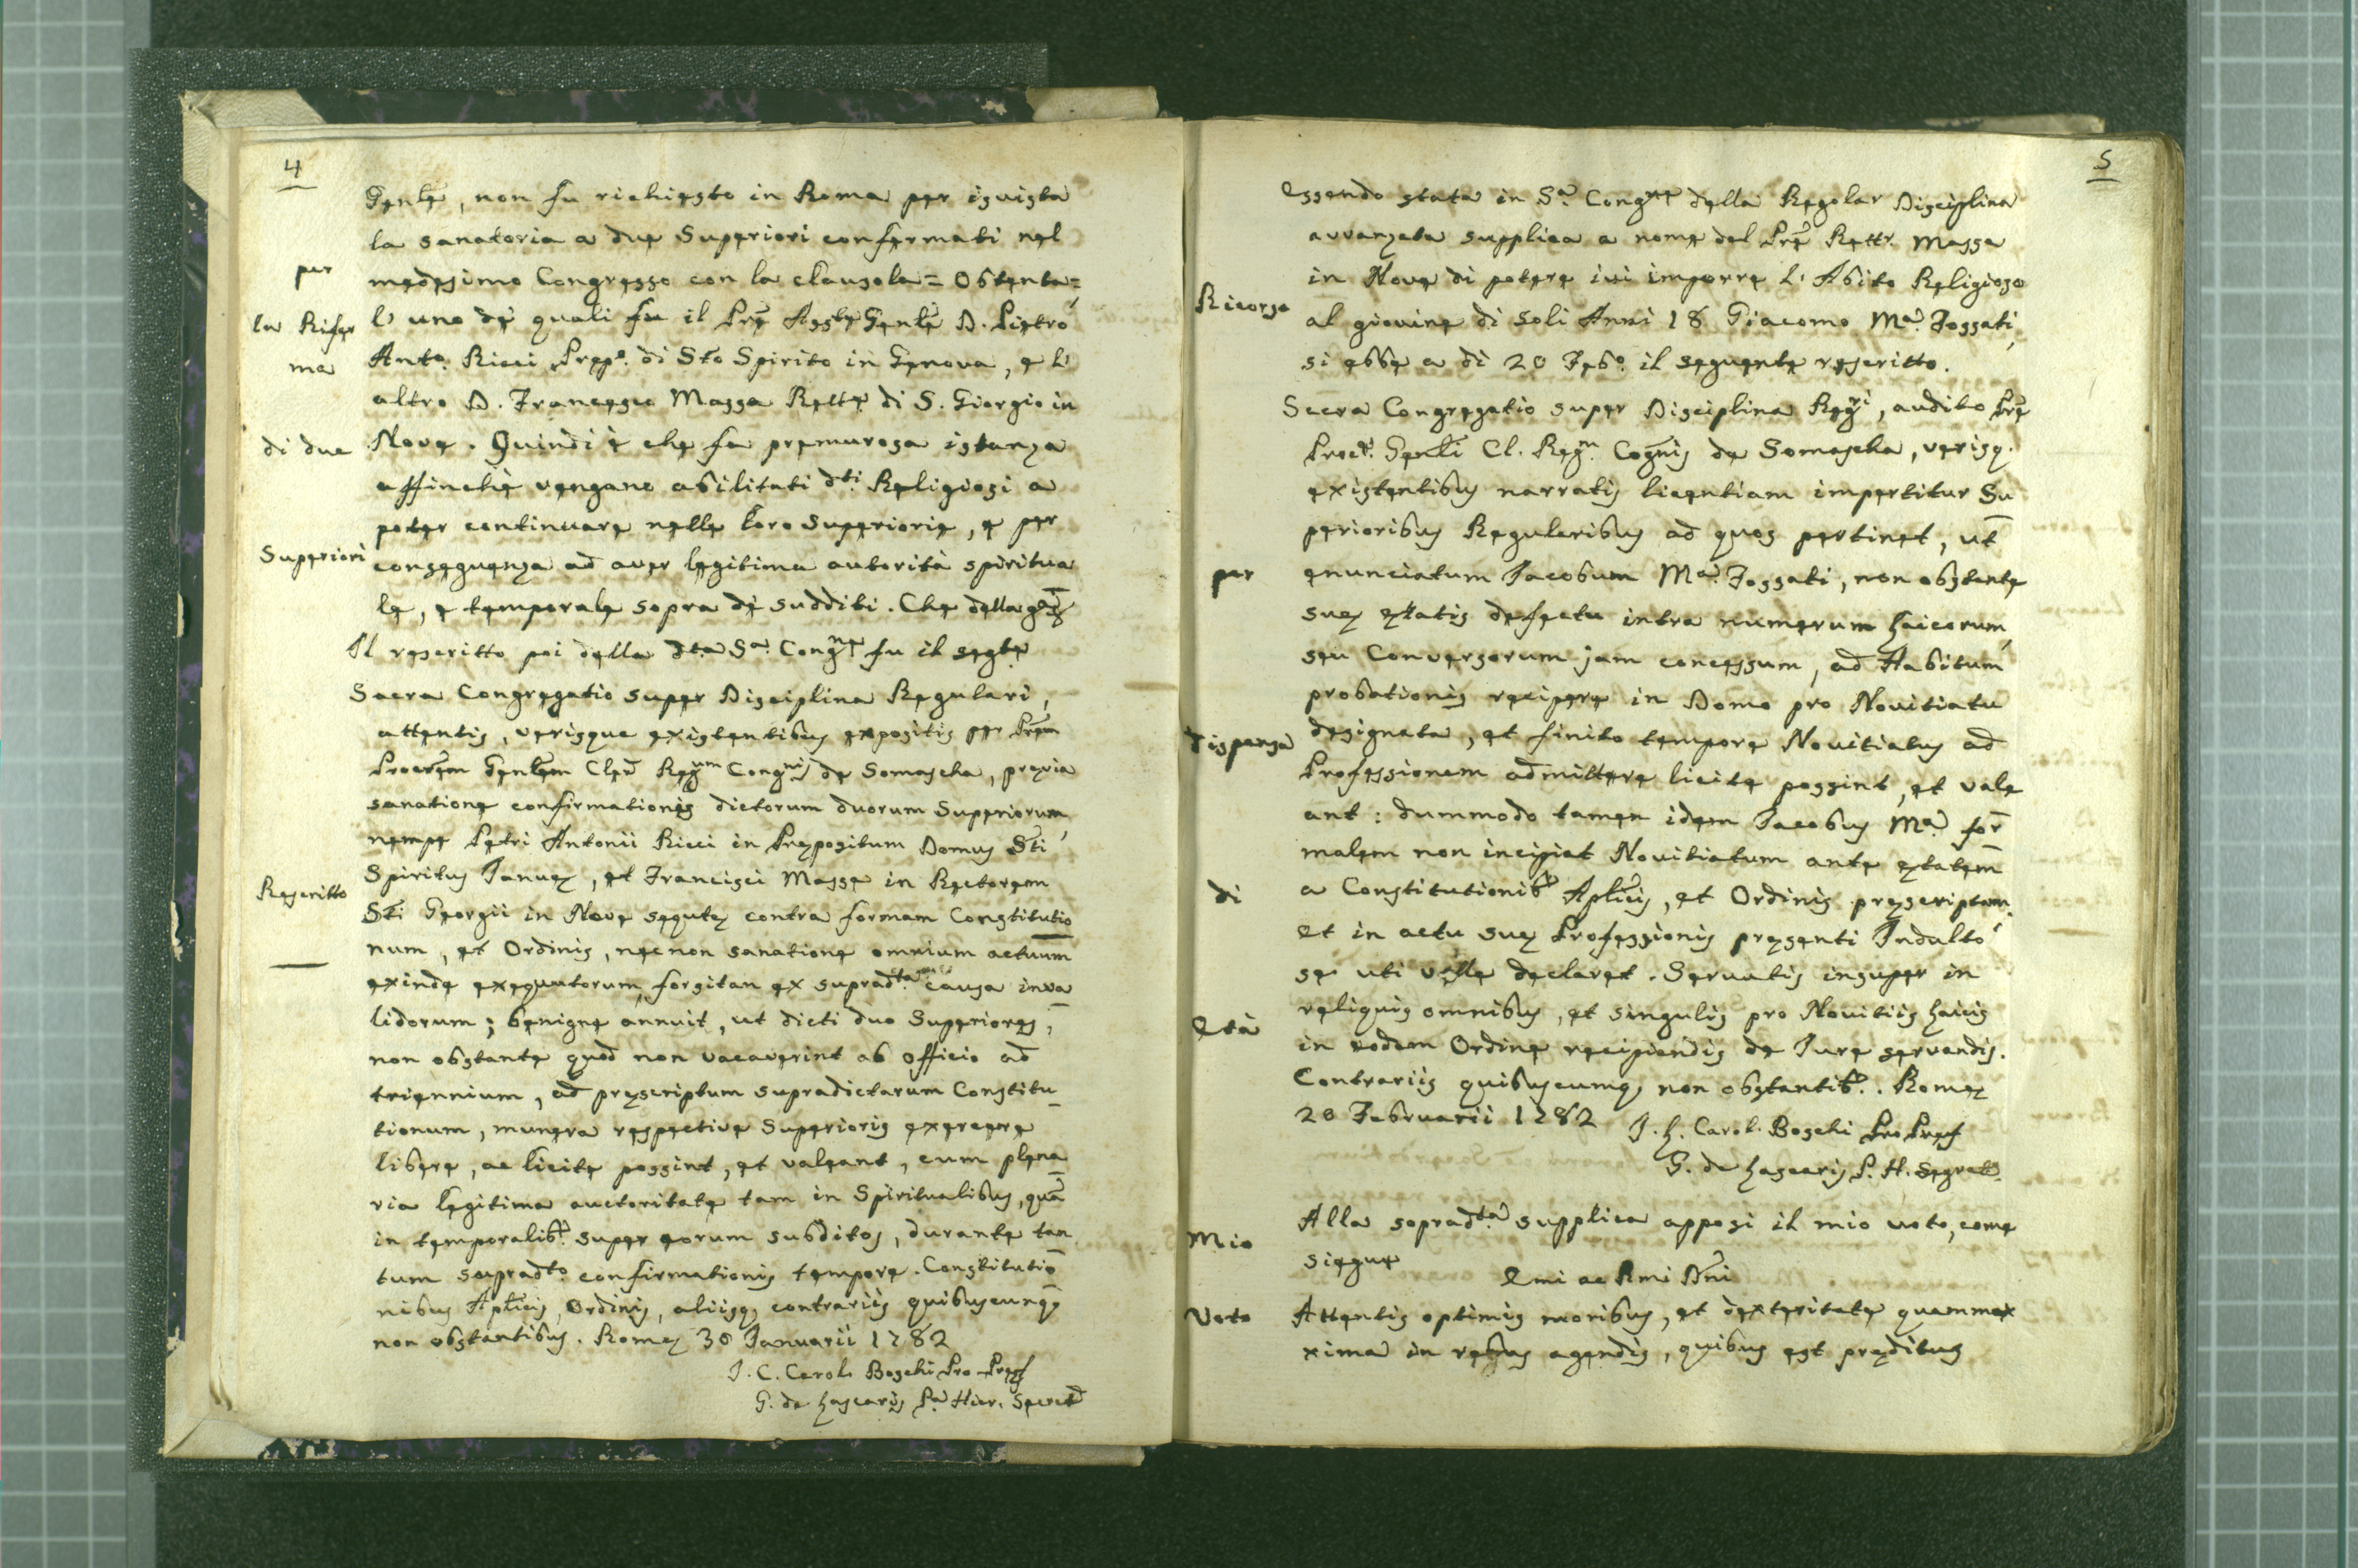 4
Genle, non fu richiesto in Roma per isvista
la sanatoria a due Superiori confermati nel
medesimo Congresso con la clausola = Obtenta =
l' uno de' quali fu il Pre Assle Genle D. Pietro
Anto. Ricci Prepo. di Sto Spirito in Genova, e l'
altro D. Francesco Massa Retre di S. Giorgio in
Nove. Quindi è che fa premurosa istanza
affinchè vengano abilitati dti Religiosi a
poter continuare nelle loro Superiorie, e per
conseguenza ad aver legitima autorità spiritua
le, e temporale sopra de' sudditi. Che della
Il rescritto poi della dta Sa. Congne fu il segte
Sacra Congregatio super Disciplina Regulari,
attentis, verisque existentibus expositis per Prem
Procrem Genlem Cler. Regum Congnis de Somascha, prævia
sanatione confirmationis dictorum duorum Superiorum,
nempe Petri Antonii Ricci in Præpositum Domus Sti
Spiritus Januæ, et Francisci Massæ in Rectorem
Sti Georgii in Nove sequtæ contra formam Constitutio
num, et Ordinis, nec non sanatione omnium actuum
exinde exequutorum, forsitan ex supradta causa inva
lidorum; benigne annuit, ut dicti duo Superiores,
non obstante quod non vacaverint ab officio ad
triennium, ad præscriptum supradictarum Constitu_
tionum, munera respective Superioris exercere
libere, ac licite possint, et valeant, cum plena
ria legitima auctoritate tam in Spiritualibus, quã
in temporalibs. super eorum subditos, durante tan
tum supradto. confirmationis tempore. Constitutio
nibus Aplicis, Ordinis, aliisq; contrariis quibuscunq;
non obstantibus. Romæ 30 Januarii 1782
J. C. Carol. Boschi Pro-Præf
G. de Lascaris Pa. Hier. Secret
per
la Rifer
ma
di due
Superiori
Rescritto
5
Essendo stata in Sa. Congne della Regolar Disciplina
avvanzata supplica a nome del Pre Rettr. Massa
in Nove di potere ivi imporre l' Abito Religioso
al giovine di soli Anni 18 Giacomo Ma. Fossati,
si ebbe a di 20 Febo. il seguente rescritto.
Sacra Congregatio super Disciplina Regri, audito Pre
Procr. Genli Cl. Regm. Cognis de Somascha, verisq.
existentibus narratis licentiam impertitur Su
perioribus Regularibus ad quos pertinet, ut
enunciatum Jacobum Ma. Fossati, non obstante
suæ ætatis defectu intra numerum Laicorum,
seu Conversorum jam concessum, ad Habitum
probationis recipere in Domo pro Novitiatu
designata, et finito tempore Novitiatus ad
Professionem admittere licite possint, et vale
ant: dummodo tamen idem Jacobus Ma. for
malem non incipiat Novitiatum ante ætatem
a Constitutionibs Aplicis, et Ordinis præscriptam,
et in actu suæ Professionis præsenti Indulto
se uti velle declaret. Servatis insuper in
reliquis omnibus, et singulis pro Novitiis Laicis
in eodem Ordine recipiendis de Jure servandis.
Contrariis quibuscumq; non obstantibs. Romæ
20 Februarii 1782
J. h. Carol. Boschi Pro Præf
G. de Lascaris P. H. Segret.
Alla sopradta supplica apposi il mio voto, come
siegue
Emi ac Rmi Dni
Attentis optimis moribus, et dexteritate quammax
xima in rebus agendis, quibus est præditus
Ricorso
per
dispensa
di
Età
Mio
Voto